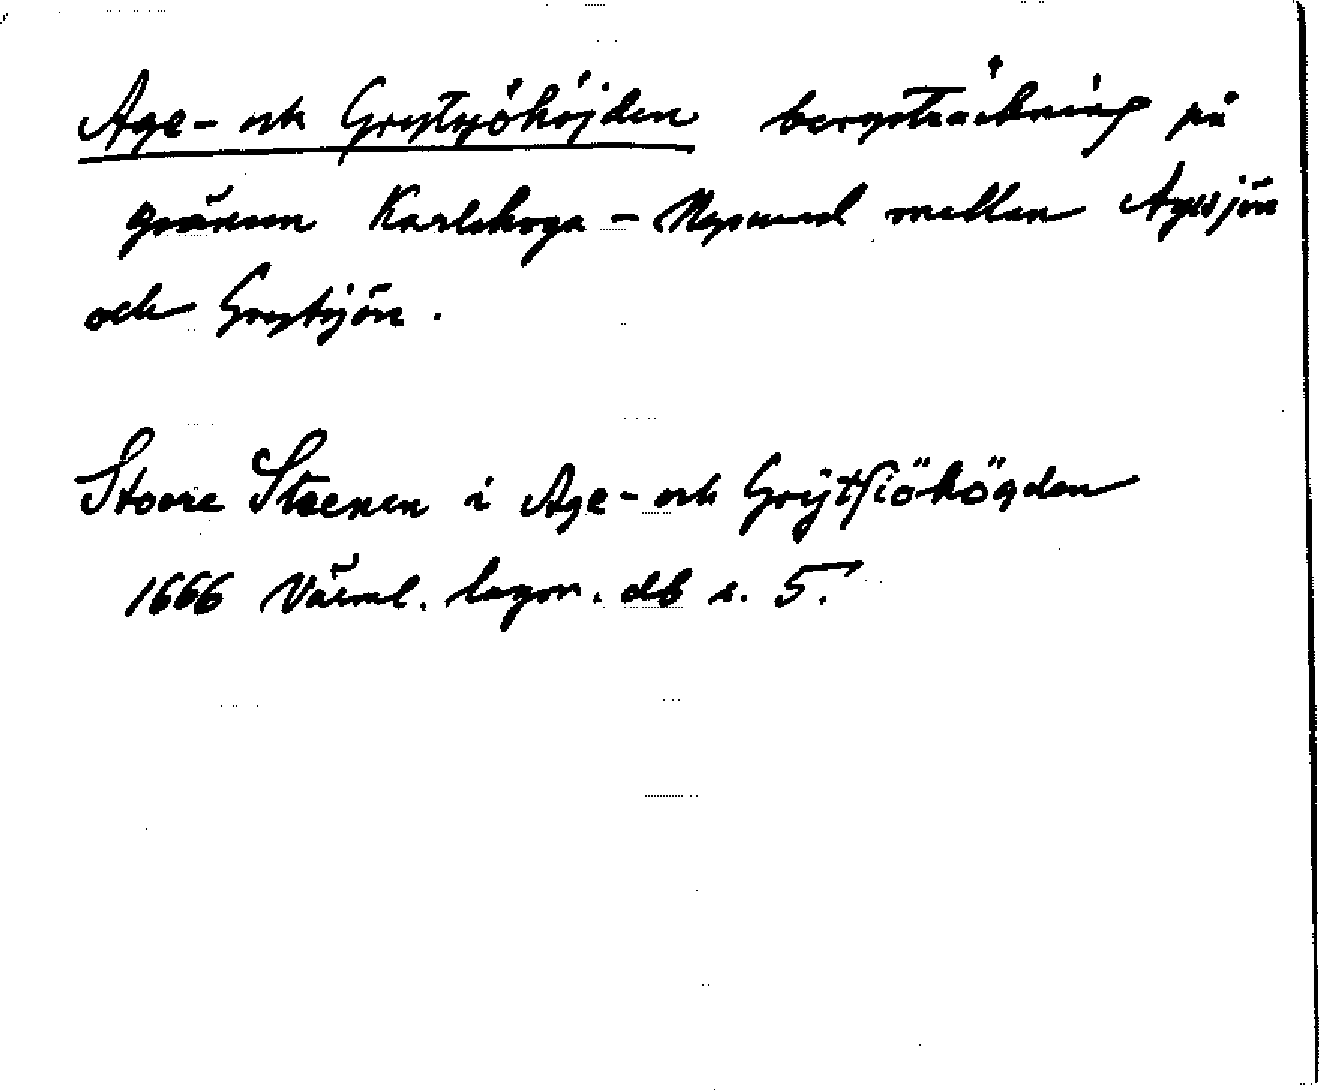 Age- och Grytsjöhöjden bergsträckning på
gränsen Karlskoga - Nysund mellan Agesjön
och Grytsjön.
Stoore Steenen i Age- och Grÿtsiöhögden
1666 Värml. lagm. db s. 5.